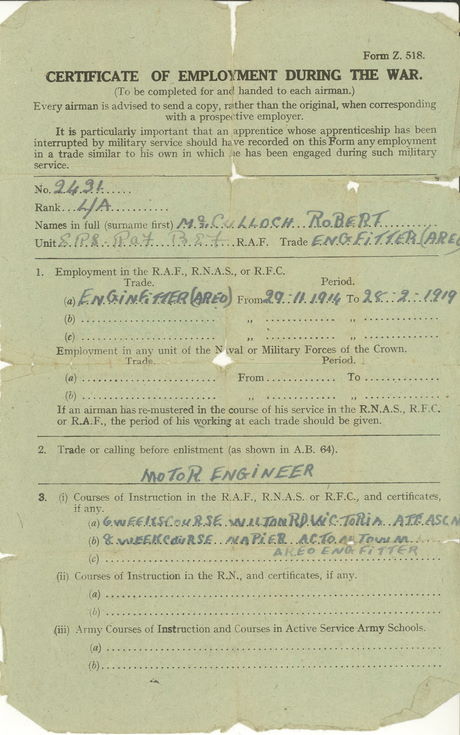 Form Z. 518.
CERTIFICATE OF EMPLOYMENT DURING THE WAR.
(To be completed for and handed to each airman.)
Every airman is advised to send a copy, rather than the original, when corresponding
with a prospective employer.
It is particularly important that an apprentice whose apprenticeship has been
interrupted by military service should have recorded on this Form any employment
in a trade similar to his own in which he has been engaged during such military
service.
No. 2491
Rank L/A
Names in full (surname first) McCULLOCH ROBERT
Unit R.A.F. Trade ENG.FITTER (AREO
1. Employment in the R.A.F., R.N.A.S., or R.F.C.
Trade. Period.
(a) ENGINFITTER (AREO) From 29.11.1914 To 28-2-1919
(b) ,, ,,
(c) ,, ,,
Employment in any unit of the Naval or Military Forces of the Crown.
Trade. Period.
(a) From To
(b) ,, ,,
If an airman has re-mustered in the course of his service in the R.N.A.S., R.F.C.
or R.A.F., the period of his working at each trade should be given.
2. Trade or calling before enlistment (as shown in A.B. 64).
MOTOR ENGINEER
3. (i) Courses of Instruction in the R.A.F., R.N.A.S. or R.F.C., and certificates,
if any.
(a) 6 WEEKS COURSE WILTON RD VICTORIA
(b) 8 WEEK COURSE NAPIER ACTON TOWN
(c) AREO ENG FITTER
(ii) Courses of Instruction in the R.N., and certificates, if any.
(a)
(b)
(iii) Army Courses of Instruction and Courses in Active Service Army Schools.
(a)
(b)